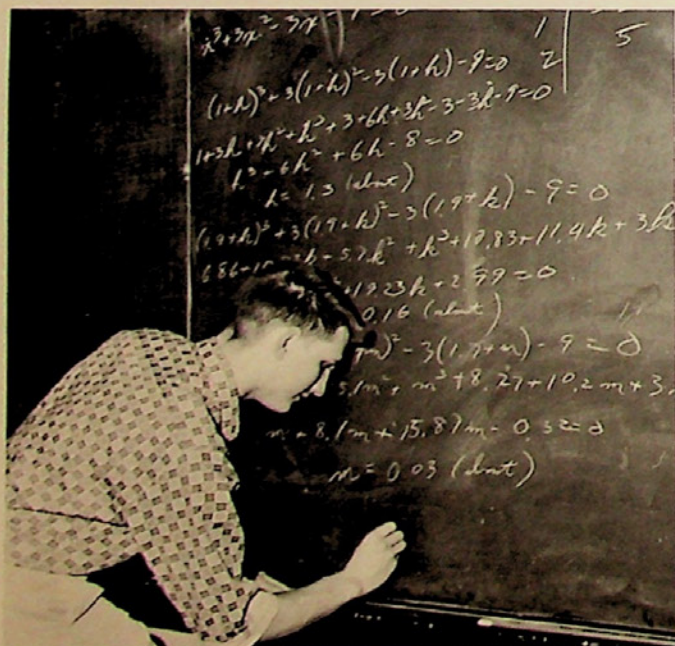 x³+3x²-3x
1
2 5
(1+h)³+3(1+h)²-3(1+h)-9=0
1+3h+3h²+h³+3+6h+3h²-3-3h-9=0
h³-6h²+6h-8=0
h=1.3 (abut)
(1.9+k)³+3(1.9+k)²-3(1.9+k)-9=0
6.86+10 k+5.7k²+k³+10.83+11.4k+3k
+19.23k+2.99=0
0.16 (abut)
m)²-3(1.7+m)-9=0
5.1m²+m³+8.27+10.2m+3
m+8.1m+15.87m-0.52=0
m=0.03 (abut)